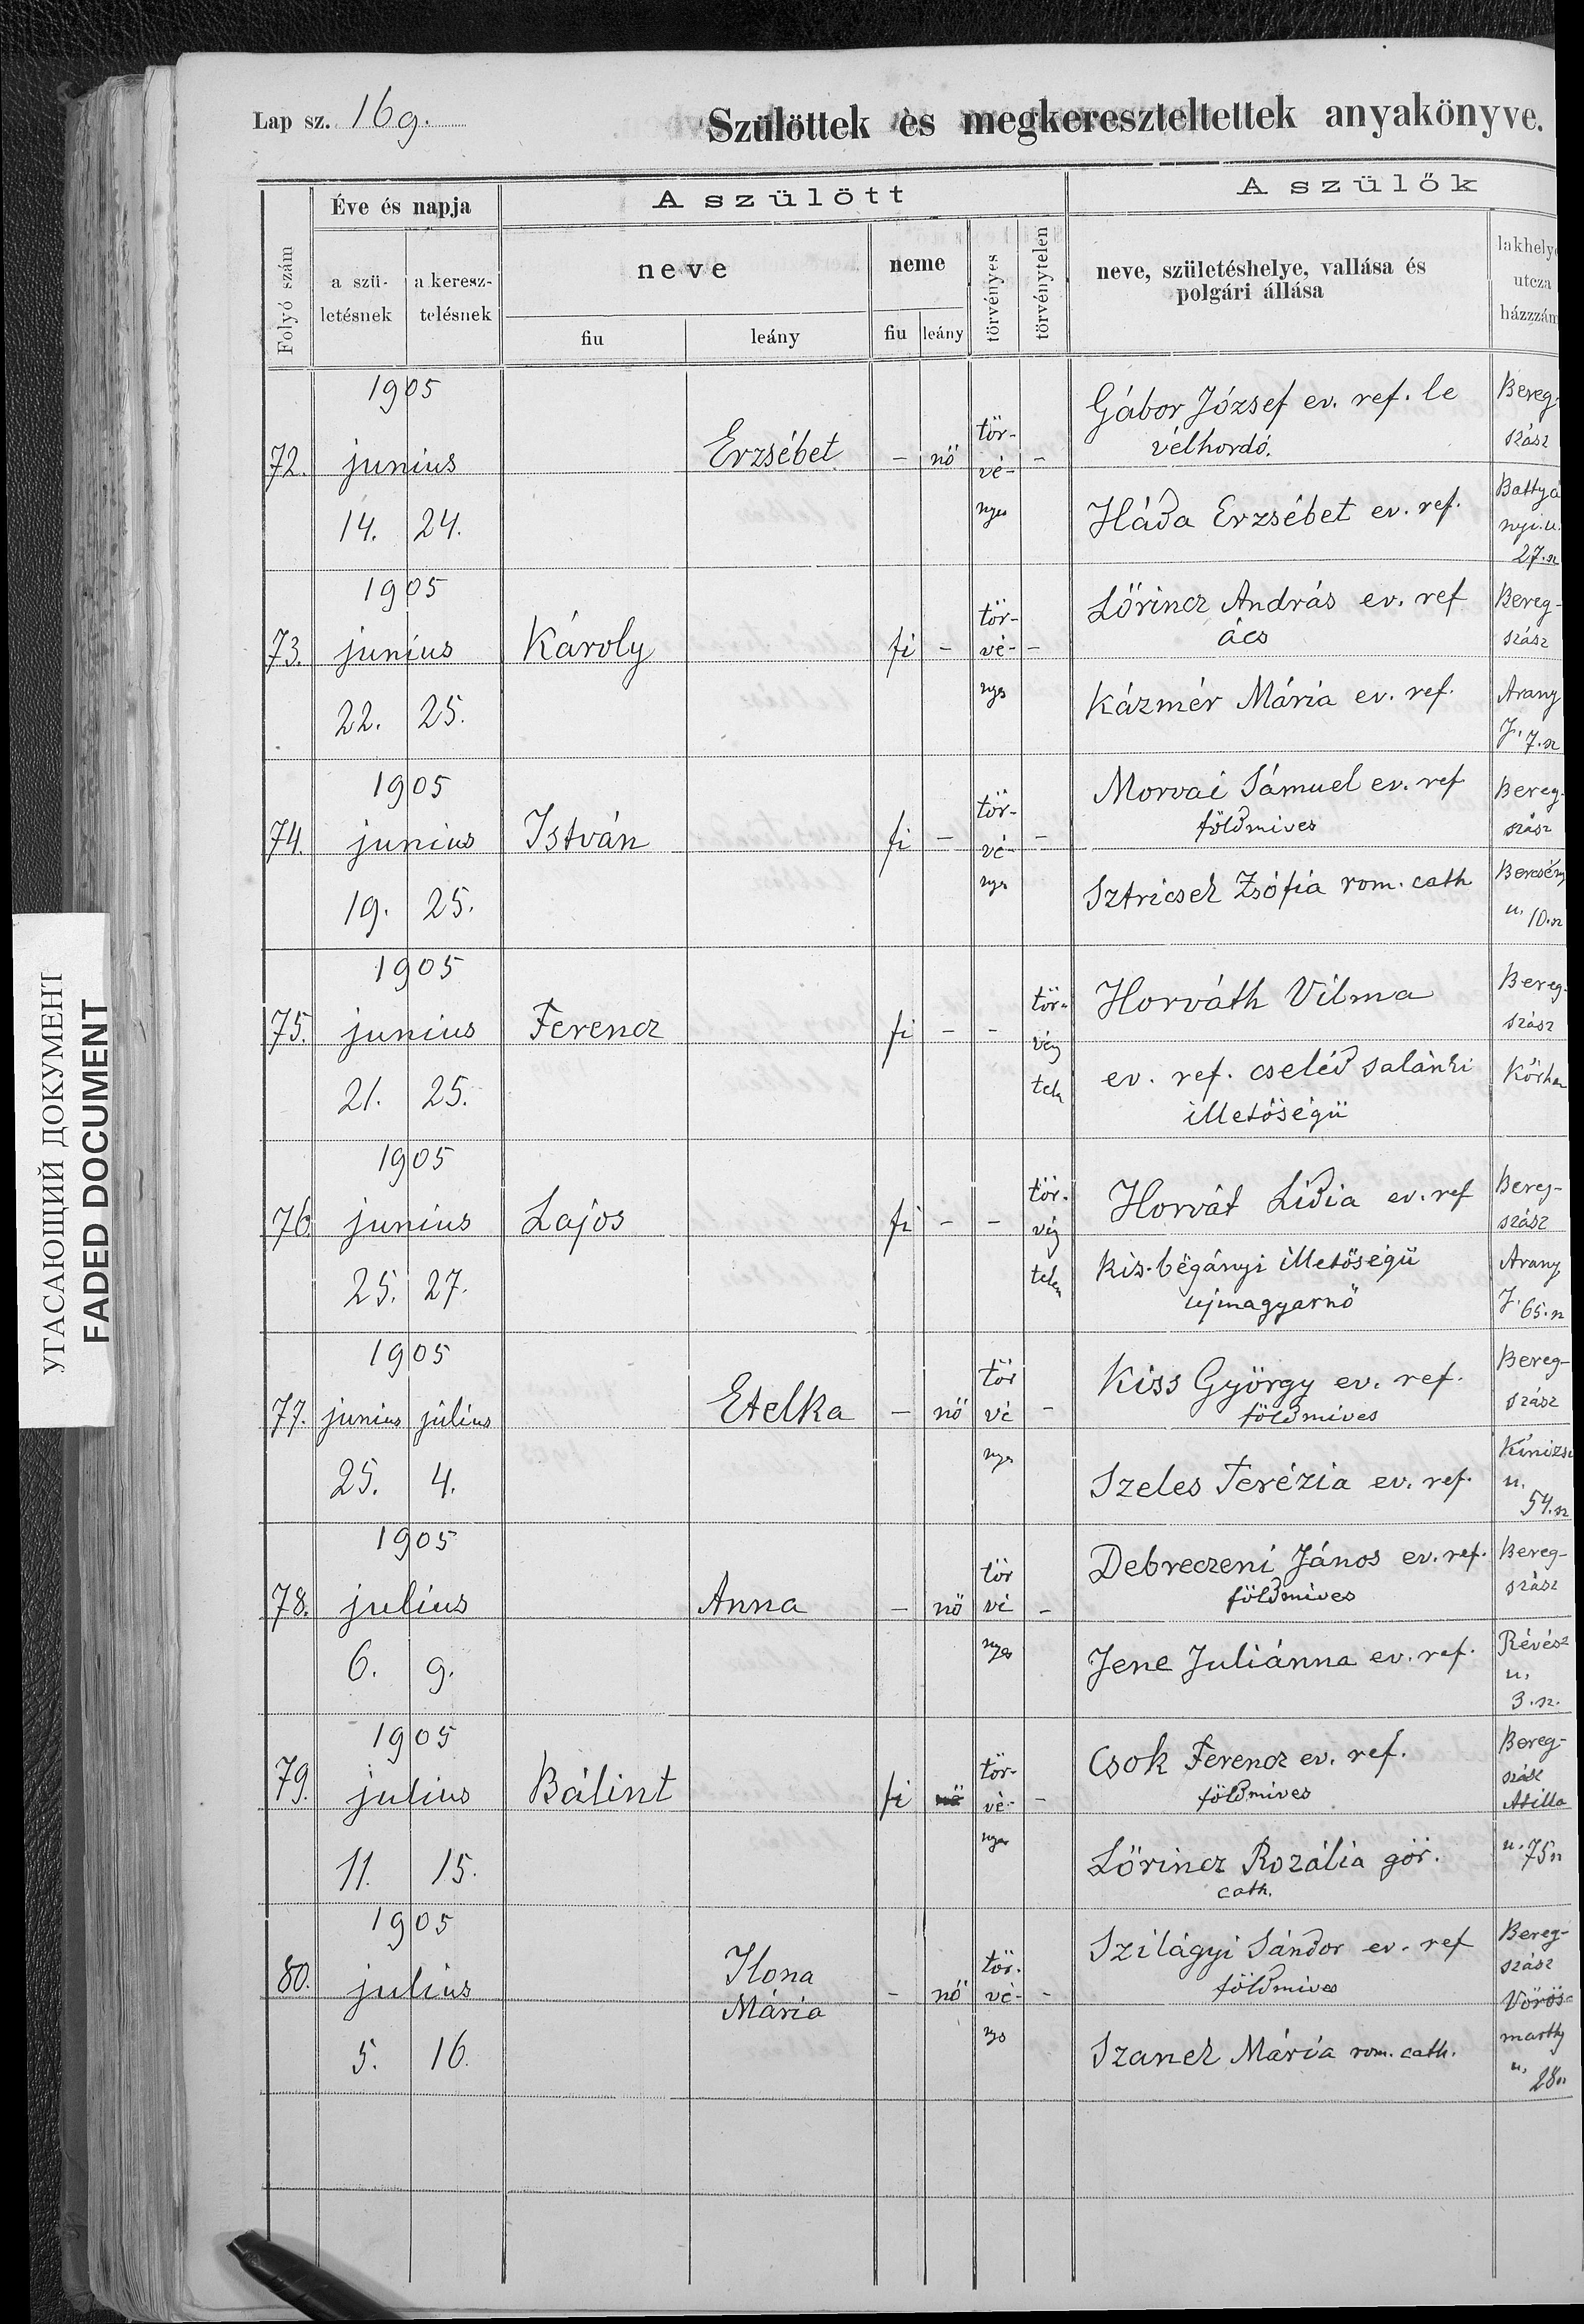 Lap sz. 169.
Szülöttek és megkereszteltettek anyakönyve.
Folyó szám
Éve és napja
a szü-
letésnek
a keresz-
telésnek
A szülött
neve
fiu
leány
neme
fiu
leány
törvényes
törvénytelen
A szülők
neve, születéshelye, vallása és
polgári állása
lakhelye
utcza
házzzám
72.
1905
junius
14. 24.
Erzsébet
- nő
tör-
vé-
nyes
-
Gábor József ev. ref. le
vélhordó.
Háda Erzsébet ev. ref.
Bereg-
szász
Battyá
nyi. u.
27. sz
73.
1905
junius
22. 25.
Károly
fi -
tör-
vé-
nyes
-
Lőrincz András ev. ref
ács
Kázmér Mária ev. ref.
Bereg-
szász
Arany
J. 7. sz
74.
1905
junius
19. 25.
István
fi -
tör-
vé-
nyes
-
Morvai Sámuel ev. ref
földmives
Sztricsek Zsófia rom. cath
Bereg-
szász
Bercsény
u. 10. sz
75.
1905
junius
21. 25.
Ferencz
fi - -
tör-
vény
telen
Horváth Vilma
ev. ref. cseléd salánki
illetőségü
Bereg-
szász
Kórhá
76.
1905
junius
25. 27.
Lajos
fi - -
tör-
vény
telen
Horvát Lidia ev. ref
kis-bégányi illetőségü
ujmagyarnő
Bereg-
szász
Arany
J. 65. sz
77.
1905
junius julius
25. 4.
Etelka
- nő
tör
vé
nyes
-
Kiss György ev. ref.
földmives
Szeles Terézia ev. ref.
Bereg-
szász
Kinizsi
u.
54. sz
78.
1905
julius
6. 9.
Anna
- nő
tör
vé
nyes
-
Debreczeni János ev. ref.
földmives
Jene Juliánna ev. ref.
Bereg-
szász
Révész
u.
3. sz.
79.
1905
julius
11. 15.
Bálint
fi nő
tör-
vé-
nyes
-
Csok Ferencz ev. ref.
földmives
Lőrincz Rozália gör.
cath.
Bereg-
szász
Atilla
u. 75 sz
80.
1905
julius
5. 16.
Ilona
Mária
- nő
tör-
vé-
nyes
-
Szilágyi Sándor ev. ref
földmives
Szanek Mária rom. cath.
Bereg-
szász
Vörös-
marthy
u. 28 sz
УГАСАЮЩИЙ ДОКУМЕНТ
FADED DOCUMENT